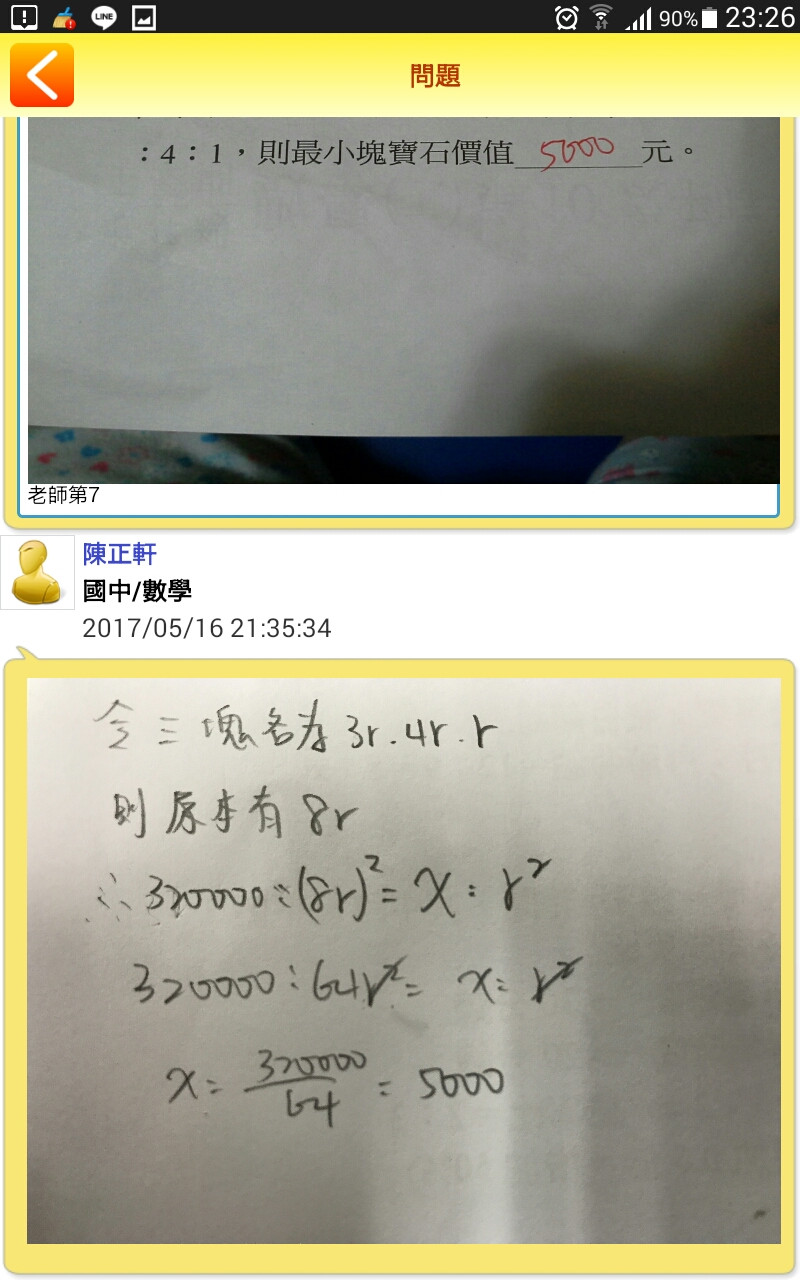 LINE
90%
23:26
問題
:4:1,則最小塊寶石價值 5000 元。
老師第7
陳正軒
國中/數學
2017/05/16 21:35:34
令三塊各為3r.4r.r
則原本有8r
∴320000:(8r)²=x:r²
320000:64r²=x:r²
x=320000/64=5000